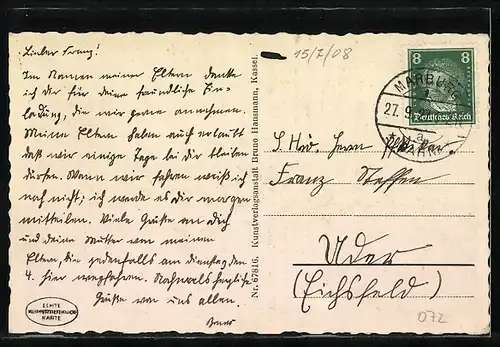 Lieber Franz!
Im Namen meiner Eltern danke
ich dir für deine freundliche Ein-
ladung, die wir gerne annehmen.
Meine Eltern haben auch erlaubt
daß wir einige Tage bei dir bleiben
dürfen. Wann wir fahren weiß ich
noch nicht; ich werde es dir morgen
mitteilen. Viele Grüße an dich
und deine Mutter von meinen
Eltern, die jedenfalls am Dienstag den
4. hier wegfahren. Nochmals herzliche
Grüße von uns allen.
ECHTE
KARTE
Nr. 67816. Kunstverlagsanstalt Bruno Hansmann, Kassel.
15/7/08
8 8
Deutsches Reich
MARBURG
27.9.
S. Hw. Herrn
Franz Steffen
Uder
(Eichsfeld)
072